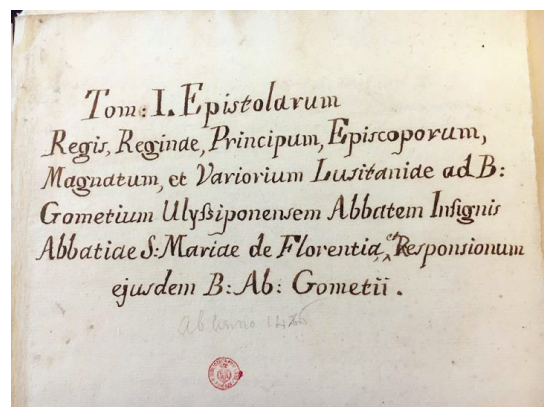 Tom: I. Epistolarum
Regis, Reginae, Principum, Episcoporum,
Magnatum, et Variorium Lusitaniae ad B:
Gometium Ulyssiponensem Abbatem Insignis
Abbatiae S: Mariae de Florentia, et Responsionum
ejusdem B: Ab: Gometii.
ab anno